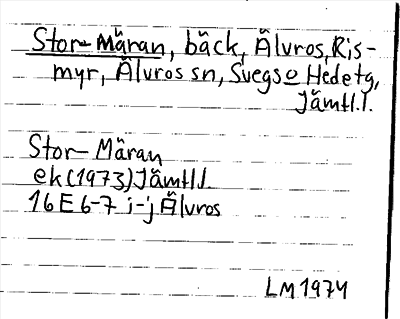 Stor-Måran, bäck, Älvros, Ris-
myr, Älvros sn, Svegs o Hede tg,
Jämtl.l.
Stor-Måran
ek(1973)Jämtl.l.
16E 6-7 i-j Älvros
LM1974